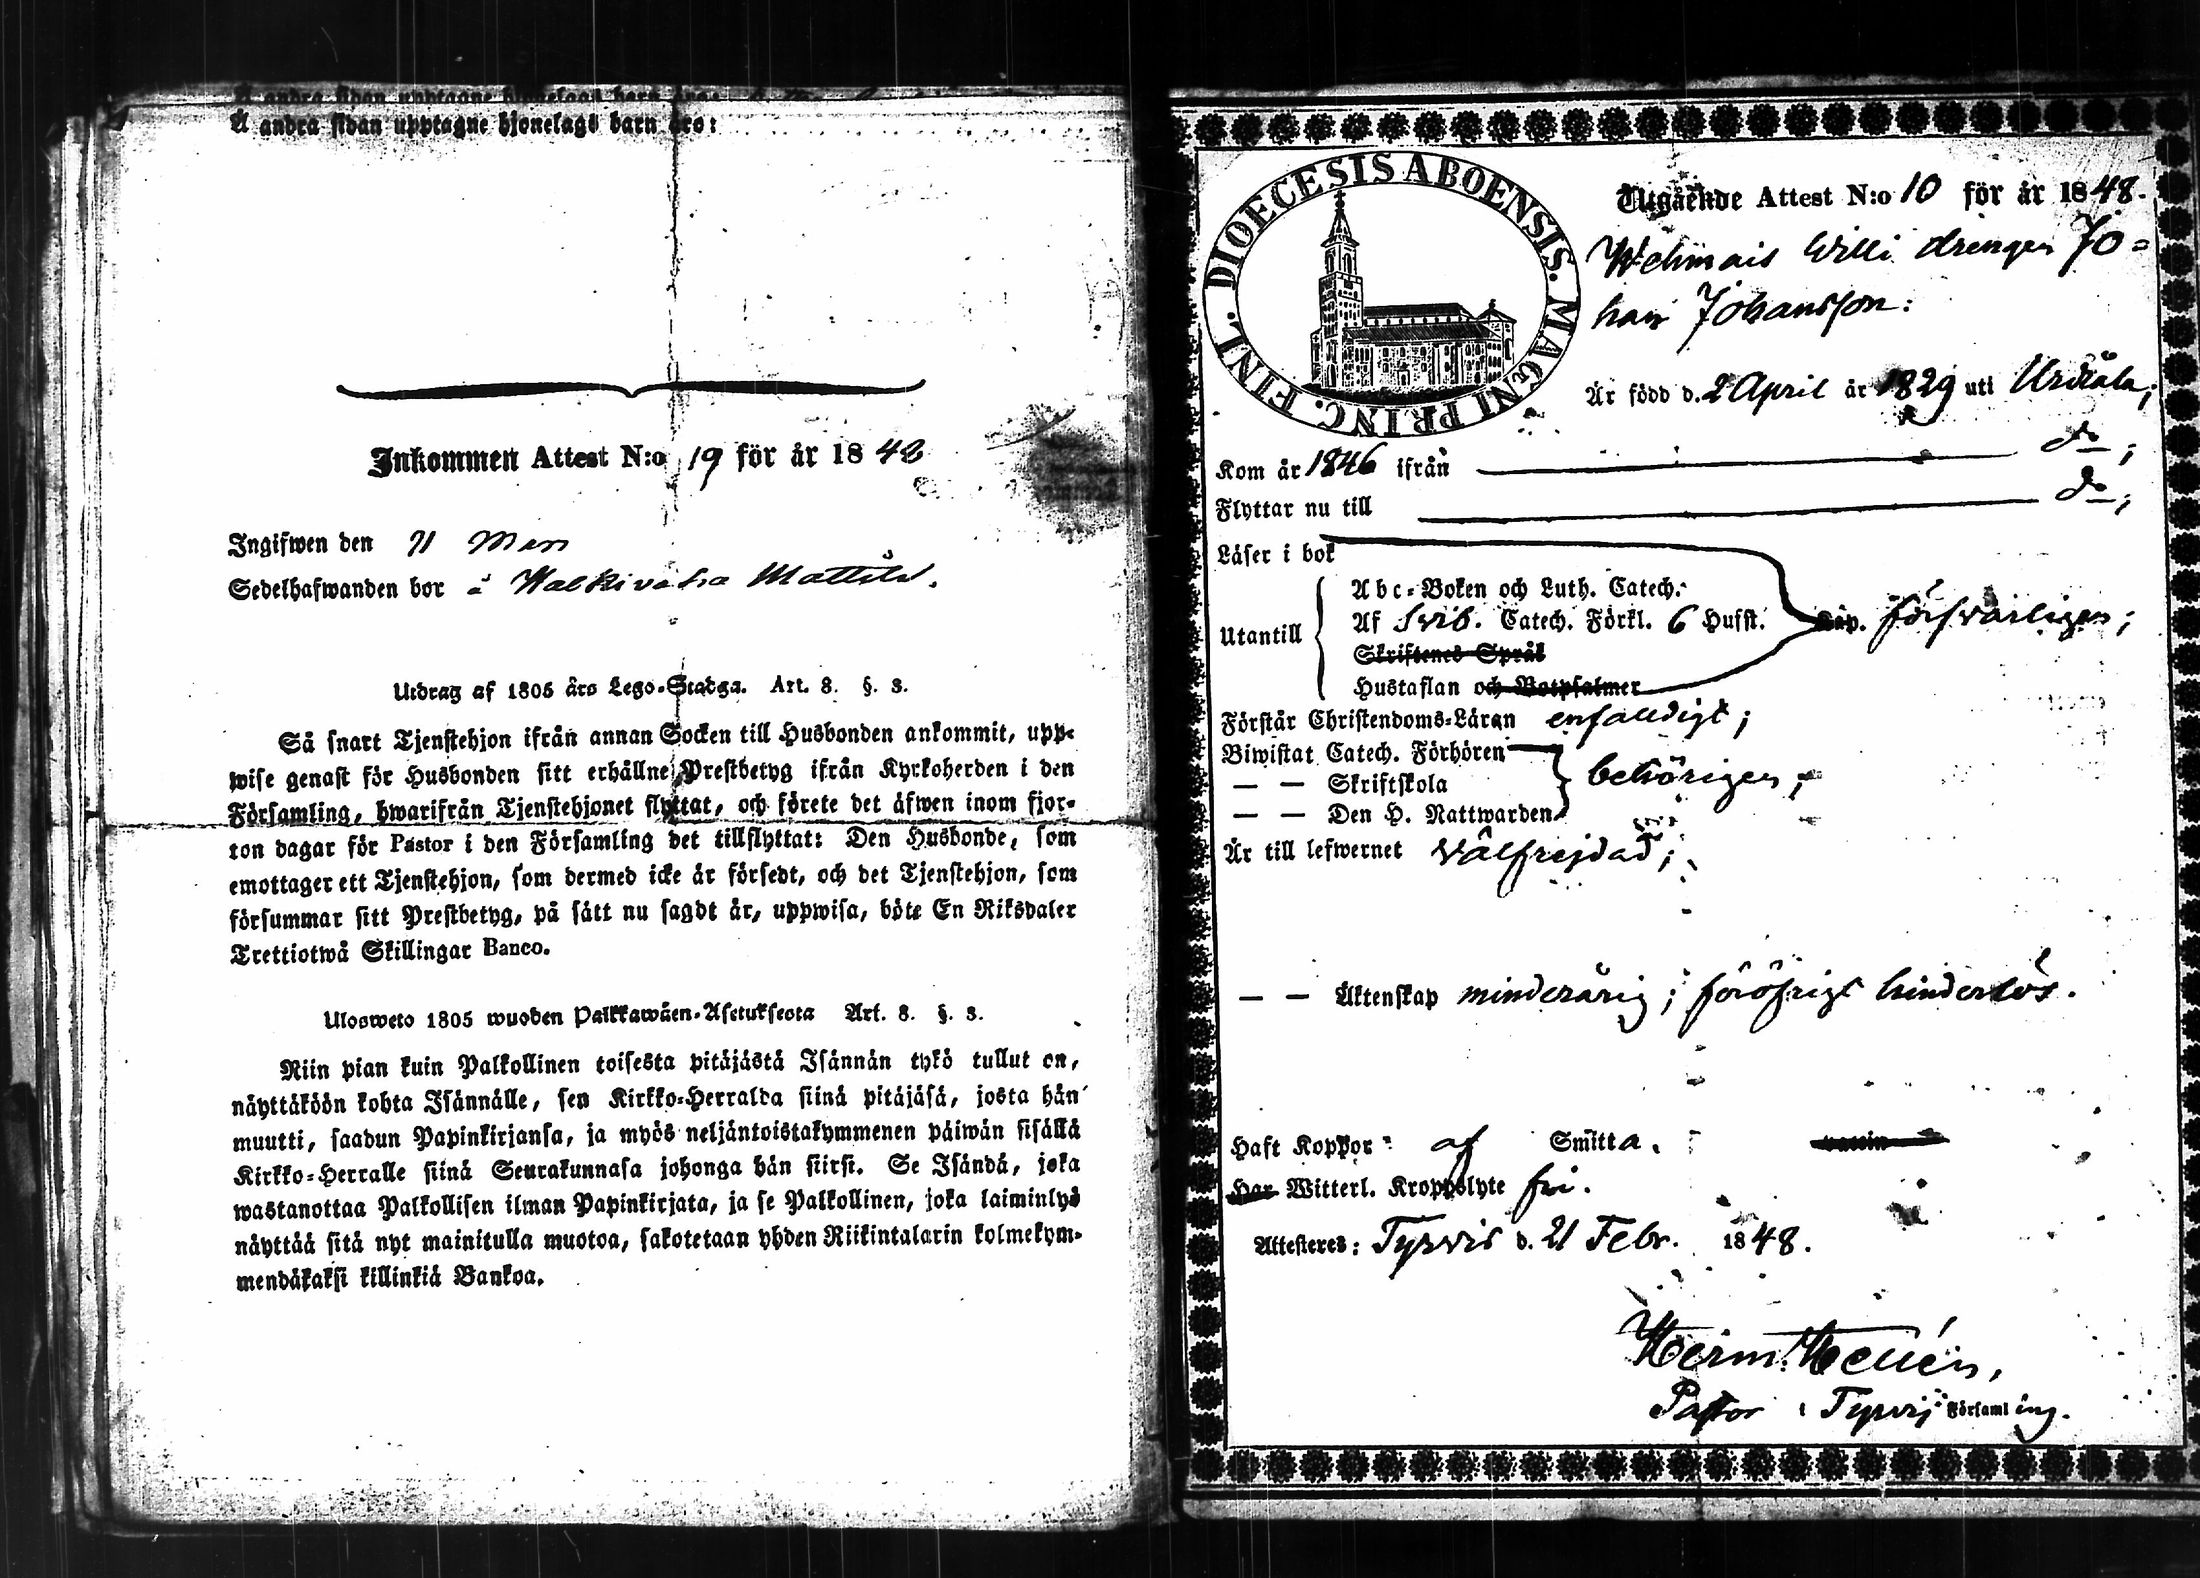 Å andra sidan upptagne hjonelags barn äro:
Inkommen Attest N:o 19 för år 1848
Ingifwen den 21 Mars
Sedelhafwanden bor å Walkivaha Mattila.
Utdrag af 1805 års Lego-Stadga. Art. 8. §. 3.
Så snart Tjenstehjon ifrån annan Socken till Husbonden ankommit, upp-
wise genast för Husbonden sitt erhållne Prestbetyg ifrån Kyrkoherden i den
Församling, hwarifrån Tjenstehjonet flyttat, och förete det äfwen inom fjor-
ton dagar för Pastor i den Församling det tillflyttat: Den Husbonde, som
emottager ett Tjenstehjon, som dermed icke är försedt, och det Tjenstehjon, som
försummar sitt Prestbetyg, på sätt nu sagdt är, uppwisa, böte En Riksdaler
Trettiotwå Skillingar Banco.
Ulosweto 1805 wuoden Palkkawäen-Asetuksesta Art. 8. §. 3.
Niin pian kuin Palkollinen toisesta pitäjästä Isännän tykö tullut on,
näyttäköön kohta Isännälle, sen Kirkko-Herralda siinä pitäjäsä, josta hän
muutti, saadun Papinkirjansa, ja myös neljäntoistakymmenen päiwän sisällä
Kirkko-Herralle siinä Seurakunnasa johonga hän siirsi. Se Isändä, joka
wastanottaa Palkollisen ilman Papinkirjata, ja se Palkollinen, joka laiminlyö
näyttää sitä nyt mainitulla muotoa, sakotetaan yhden Riikintalarin kolmekym-
mendäkaksi killinkiä Bankoa.
DIOECESIS ABOENSIS. MAGNI PRINC. FINL.
Utgående Attest N:o 10 för år 1848.
Wehmais Willi drengen Jo=
han Johansson:
Är född d. 2 April år 1829 uti Urdiala;
Kom år 1846 ifrån do;
Flyttar nu till do;
Läser i bok
Abc-Boken och Luth. Catech.
Utantill Af Svib. Catech. Förkl. 6 Hufst. Kåp. försvarligen;
Skriftenes Språk
Hustaflan och Botpsalmer
Förstår Christendoms-Läran enfaldigt;
Biwistat Catech. Förhören
— — Skriftskola behörigen;
— — Den H. Nattwarden
Är till lefwernet välfrejdad;
— — Äktenskap minderårig; föröfrigt hinderlös.
Haft Koppor af Smitta. vaccin
Har Witterl. Kroppslyte fri.
Attesteres: Tyrvis d. 21 Febr. 1848.
Herm. Hellén,
Pastor i Tyrvis Församling.